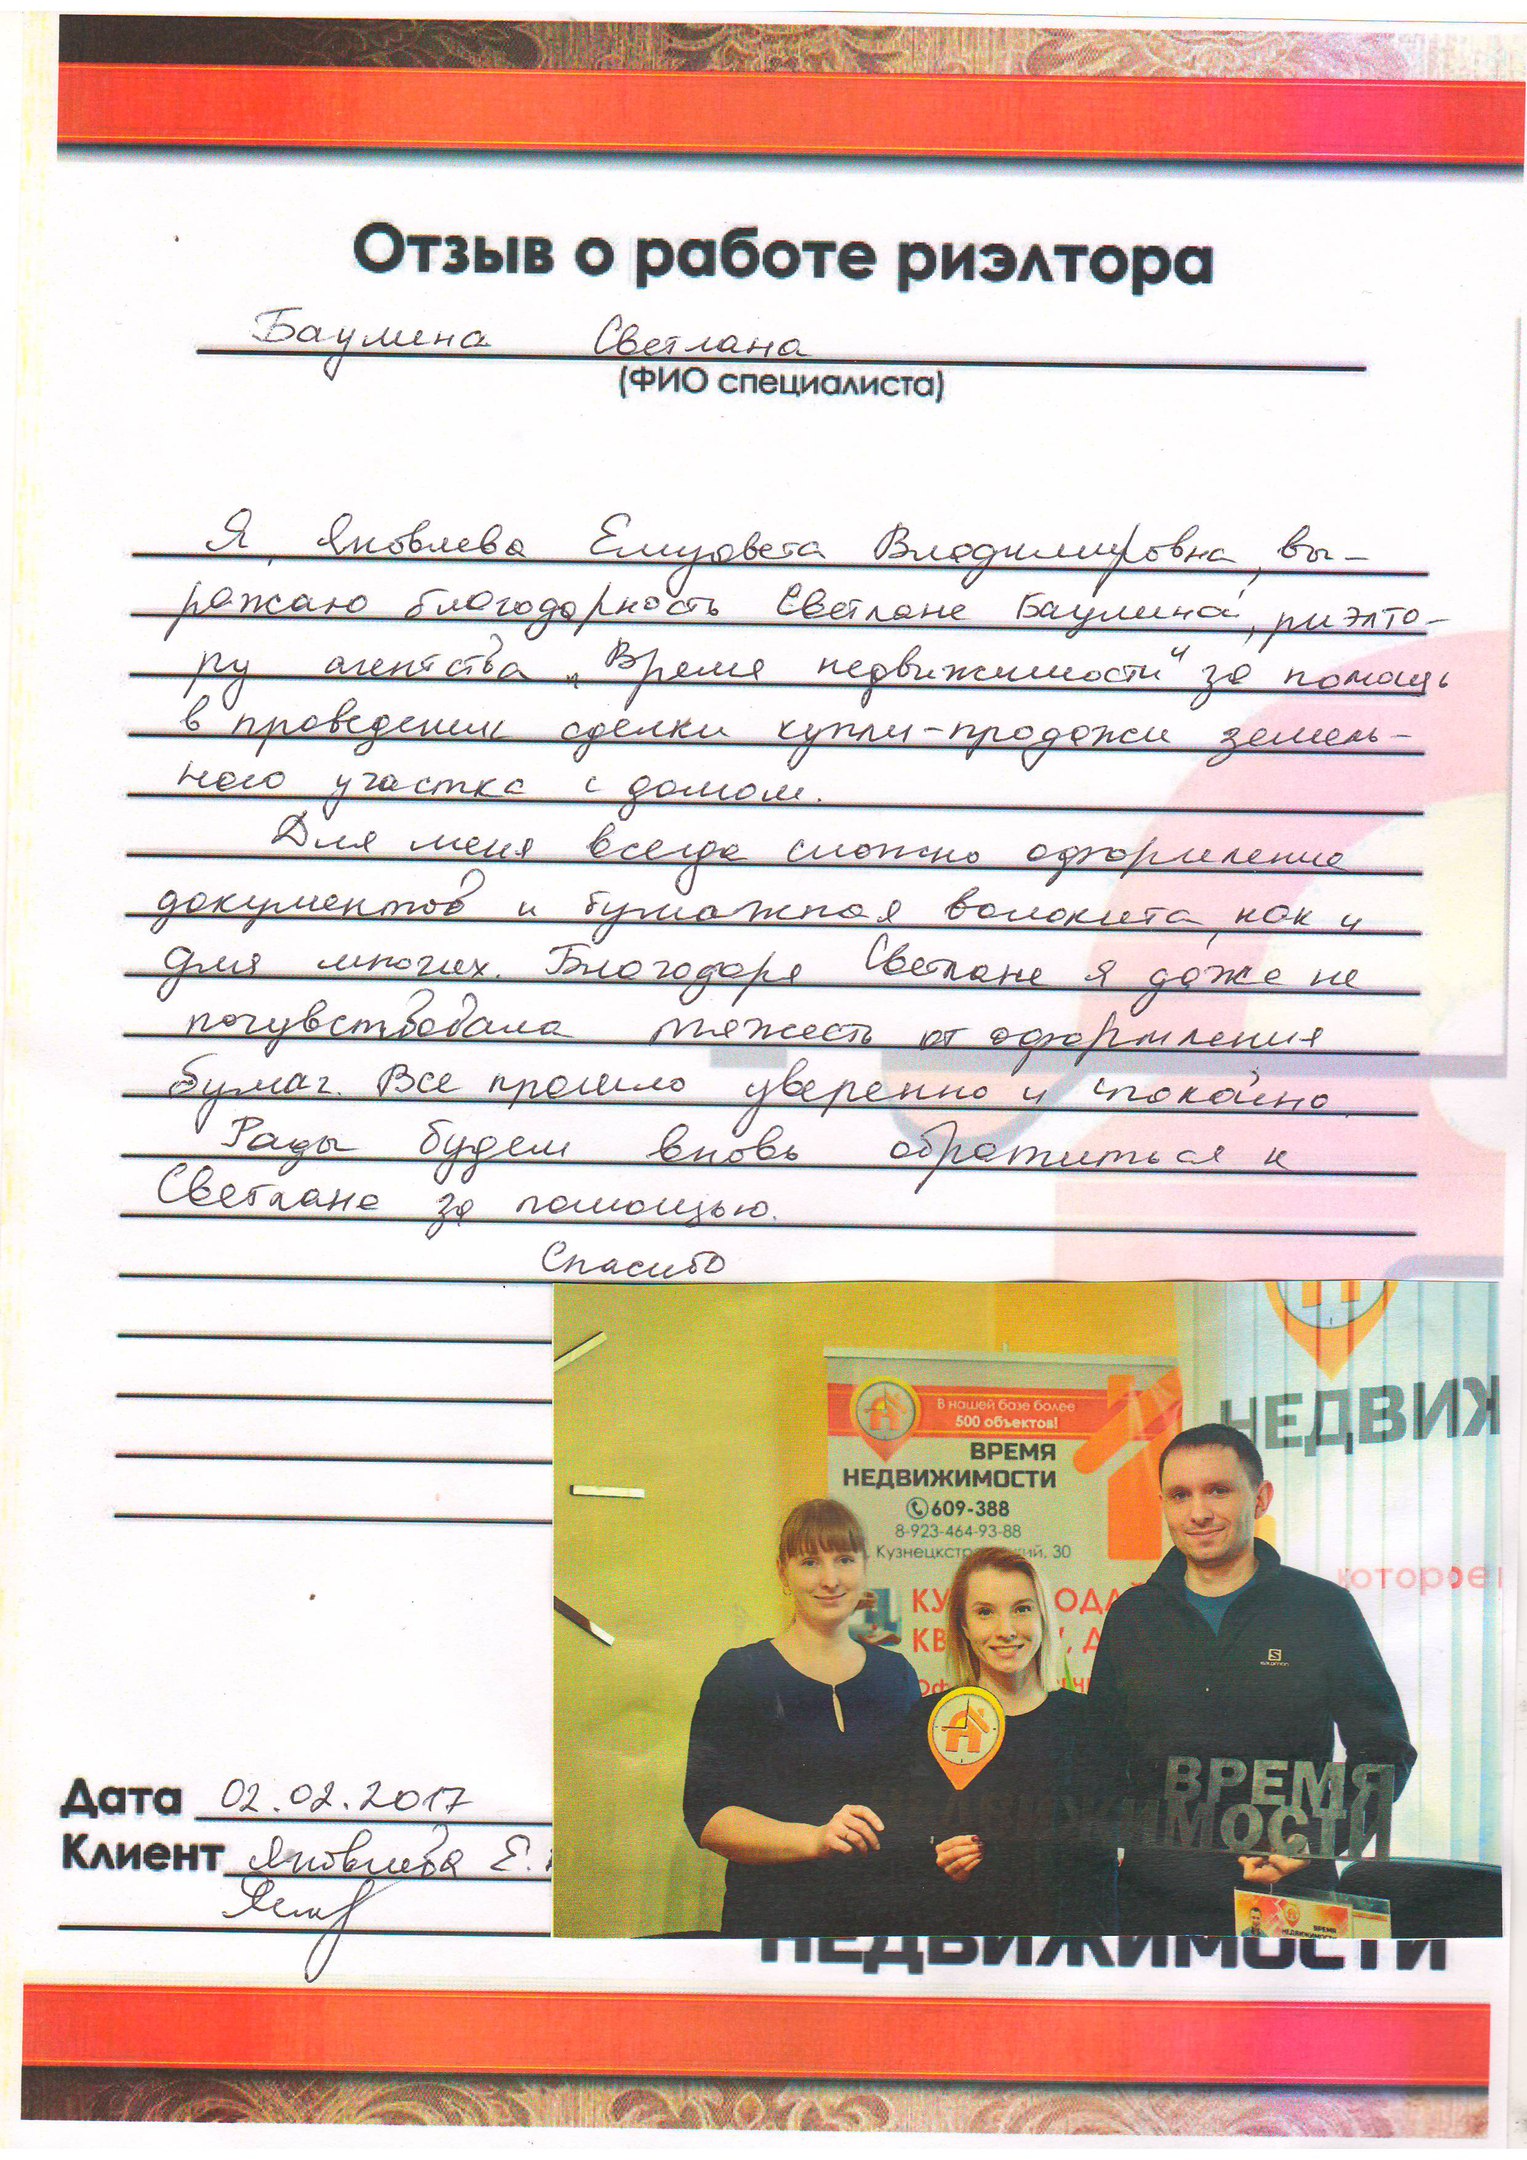 Отзыв о работе риэлтора
Баумина Светлана
(ФИО специалиста)
Я, Яковлева Елизовета Владимировна, вы-
ражаю благодарность Светлане Баумина, риэлто-
ру агентства „Время недвижимости" за помощь
в проведении сделки купли-продажи земель-
ного участка с домом.
Для меня всегда сложно оформление
документов и бумажная волокита, как и
для многих. Благодаря Светлане я даже не
почувствовала тяжесть от оформления
бумаг. Все прошло уверенно и спокойно
Рады будем вновь обратиться к
Светлане за помощью.
Спасибо
НЕДВИЖ
В нашей базе более
500 объектов!
ВРЕМЯ
НЕДВИЖИМОСТИ
609-388
8-923-464-93-88
Кузнецкстр кий, 30
которое
КУ ОДА
КВ , Д
SALOMON
ВРЕМЯ
ИМОСТИ
ВРЕМЯ
НЕДВИЖИМОСТИ
Дата 02.02.2017
Клиент Яковлева Е.
НЕДВИЖИМОСТИ